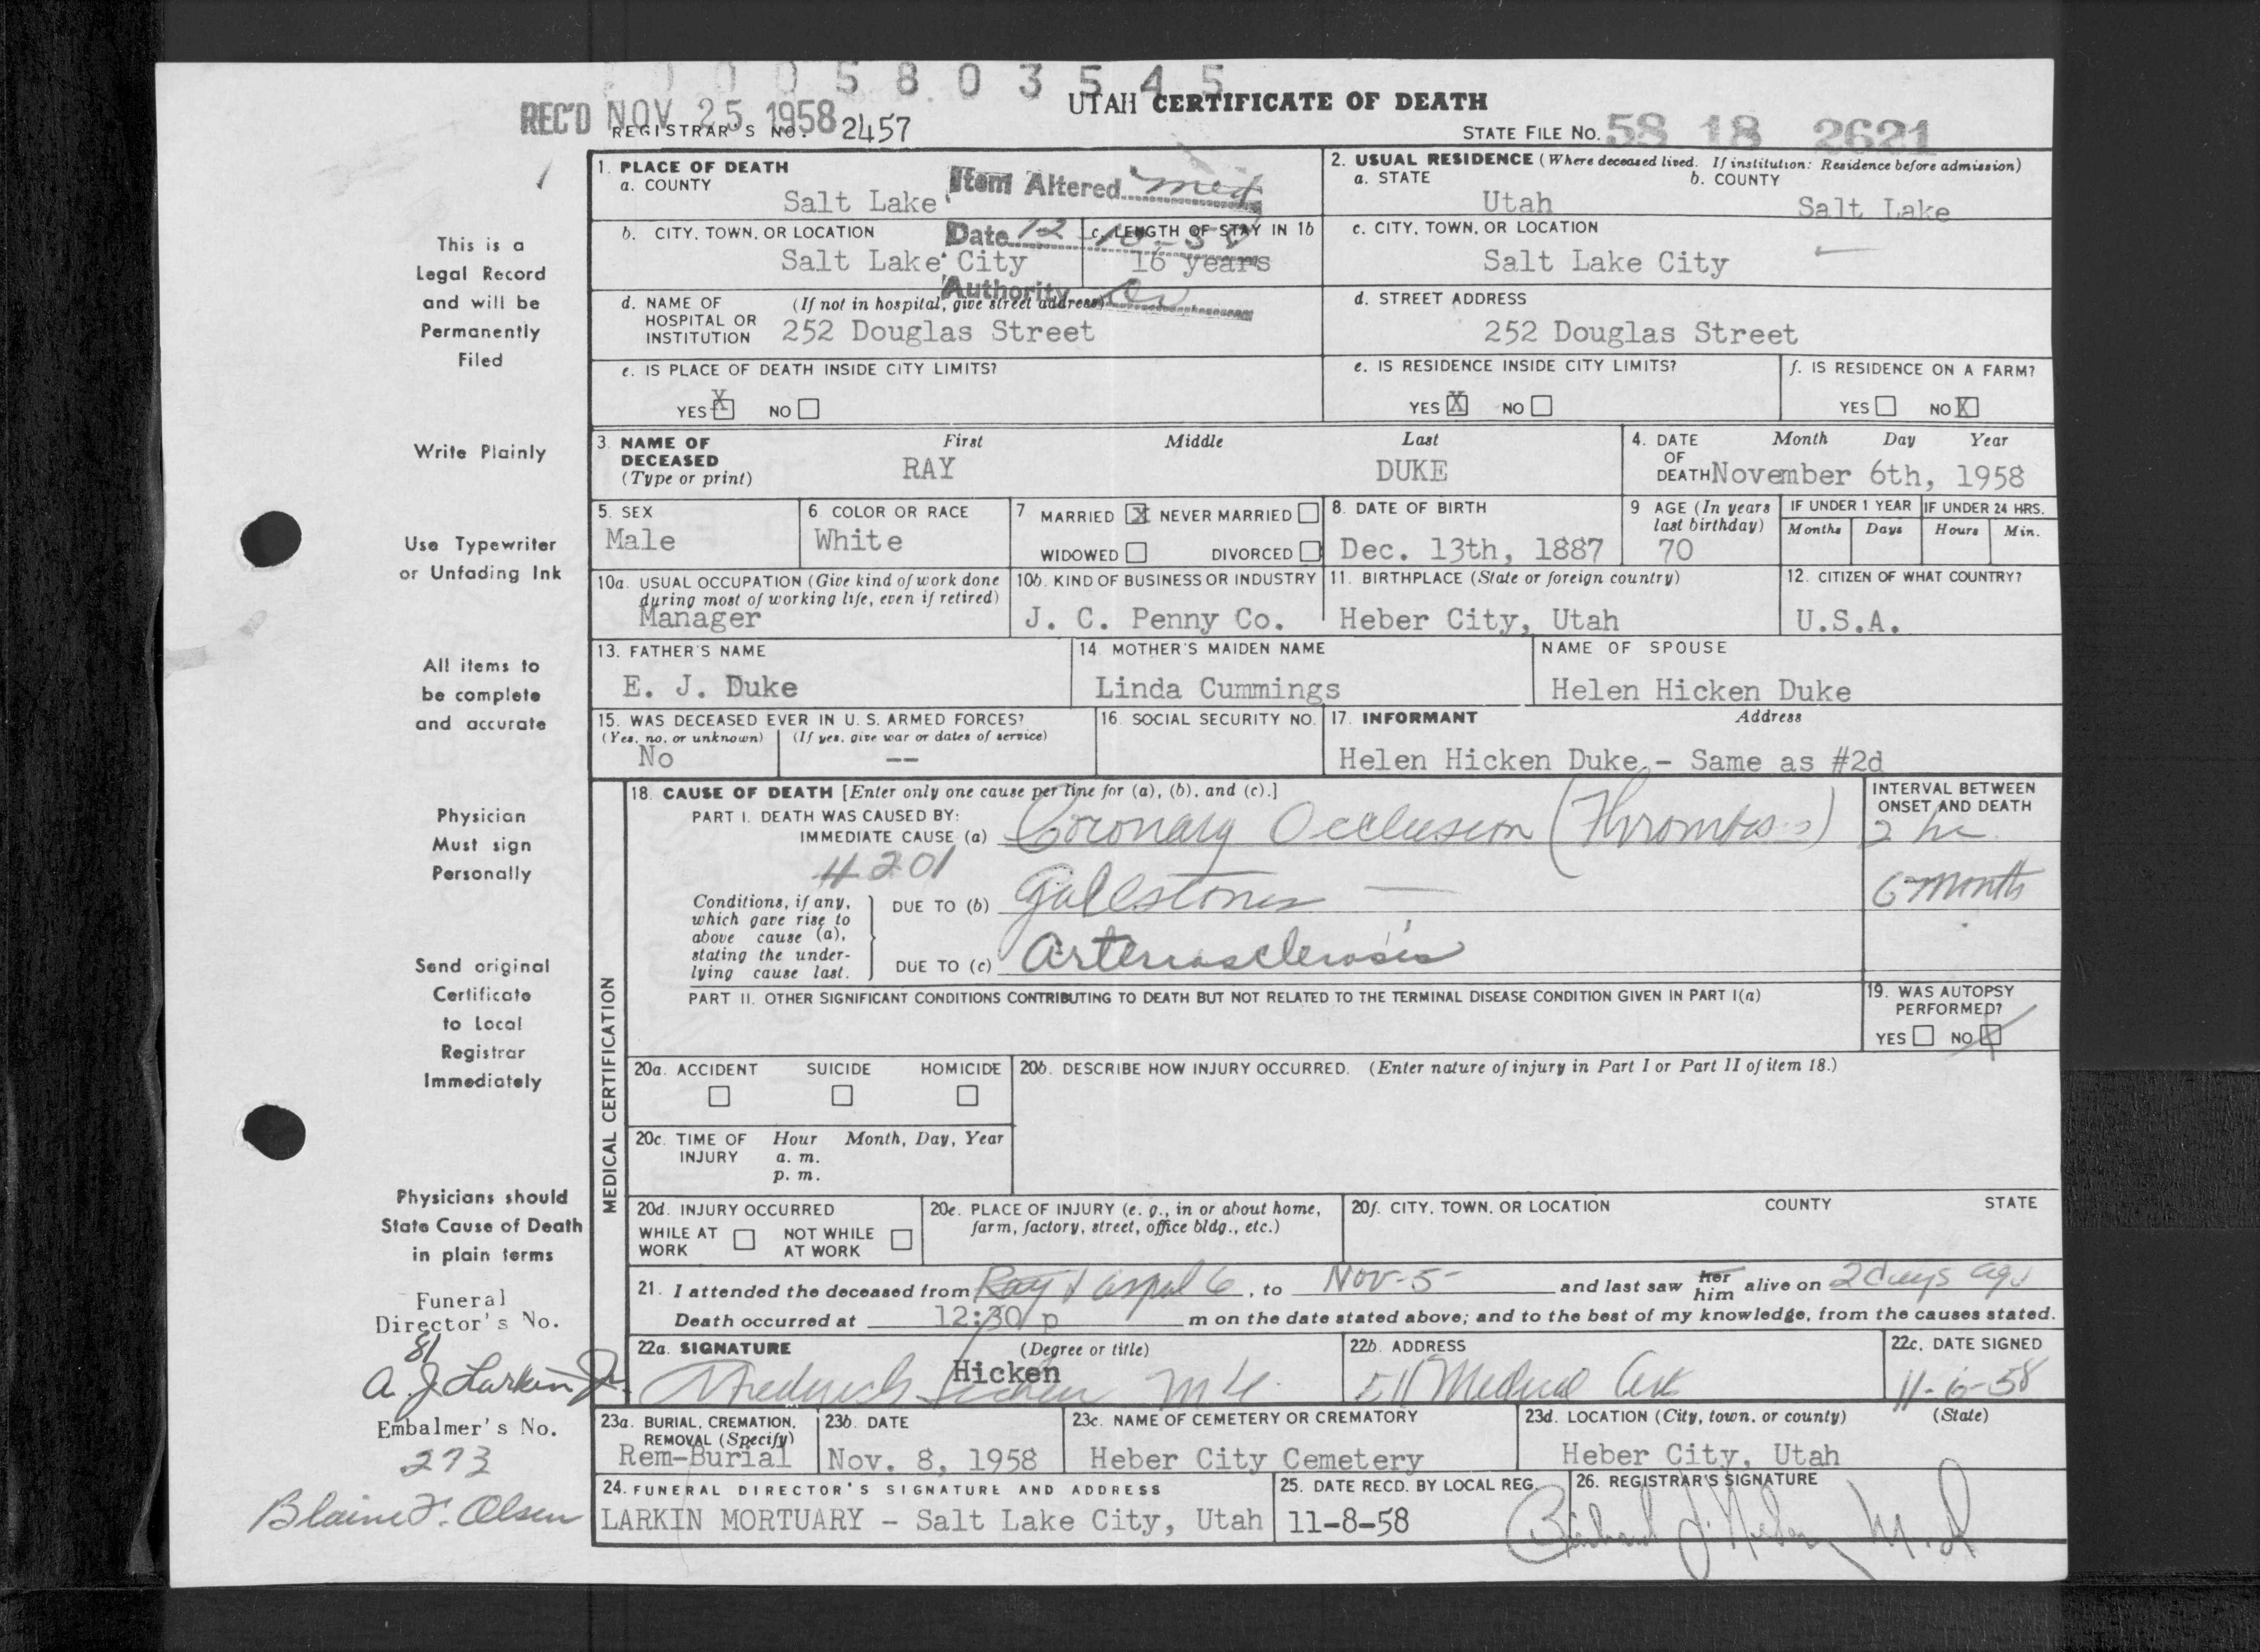 10005803545
REC'D NOV 25 1958
UTAH CERTIFICATE OF DEATH
REGISTRAR'S NO. 2457
STATE FILE NO. 58 18 2621
This is a
Legal Record
and will be
Permanently
Filed
Write Plainly
Use Typewriter
or Unfading Ink
All items to
be complete
and accurate
Physician
Must sign
Personally
Send original
Certificate
to Local
Registrar
Immediately
Physicians should
State Cause of Death
in plain terms
Funeral
Director's No.
81
A. J. Larkin Jr.
Embalmer's No.
273
Blaine F. Olsen
1. PLACE OF DEATH
a. COUNTY
Salt Lake
Item Altered
Date 12-10-58
Authority
2. USUAL RESIDENCE (Where deceased lived. If institution: Residence before admission)
a. STATE
Utah
b. COUNTY
Salt Lake
b. CITY, TOWN, OR LOCATION
Salt Lake City
c. LENGTH OF STAY IN 1b
16 years
c. CITY, TOWN, OR LOCATION
Salt Lake City
d. NAME OF HOSPITAL OR INSTITUTION
(If not in hospital, give street address)
252 Douglas Street
d. STREET ADDRESS
252 Douglas Street
e. IS PLACE OF DEATH INSIDE CITY LIMITS?
YES X NO
e. IS RESIDENCE INSIDE CITY LIMITS?
YES X NO
f. IS RESIDENCE ON A FARM?
YES NO X
3. NAME OF DECEASED (Type or print)
First Middle Last
RAY DUKE
4. DATE OF DEATH
Month Day Year
November 6th, 1958
5. SEX
Male
6. COLOR OR RACE
White
7 MARRIED X NEVER MARRIED
WIDOWED DIVORCED
8. DATE OF BIRTH
Dec. 13th, 1887
9 AGE (In years last birthday)
70
IF UNDER 1 YEAR
Months Days
IF UNDER 24 HRS.
Hours Min.
10a. USUAL OCCUPATION (Give kind of work done
during most of working life, even if retired)
Manager
10b. KIND OF BUSINESS OR INDUSTRY
J. C. Penny Co.
11. BIRTHPLACE (State or foreign country)
Heber City, Utah
12. CITIZEN OF WHAT COUNTRY?
U.S.A.
13. FATHER'S NAME
E. J. Duke
14. MOTHER'S MAIDEN NAME
Linda Cummings
NAME OF SPOUSE
Helen Hicken Duke
15. WAS DECEASED EVER IN U. S. ARMED FORCES?
(Yes, no, or unknown) (If yes, give war or dates of service)
No --
16. SOCIAL SECURITY NO.
17. INFORMANT Address
Helen Hicken Duke - Same as #2d
MEDICAL CERTIFICATION
18. CAUSE OF DEATH [Enter only one cause per line for (a), (b), and (c).]
INTERVAL BETWEEN
ONSET AND DEATH
PART I. DEATH WAS CAUSED BY:
IMMEDIATE CAUSE (a) Coronary Occlusion (Thrombosis)
2 hr
4201
Conditions, if any,
which gave rise to
above cause (a),
stating the under-
lying cause last.
DUE TO (b) Gallstones —
6 month
DUE TO (c) Arteriosclerosis
PART II. OTHER SIGNIFICANT CONDITIONS CONTRIBUTING TO DEATH BUT NOT RELATED TO THE TERMINAL DISEASE CONDITION GIVEN IN PART I(a)
19. WAS AUTOPSY
PERFORMED?
YES NO X
20a. ACCIDENT SUICIDE HOMICIDE
20b. DESCRIBE HOW INJURY OCCURRED. (Enter nature of injury in Part I or Part II of item 18.)
20c. TIME OF INJURY
Hour Month, Day, Year
a. m.
p. m.
20d. INJURY OCCURRED
WHILE AT WORK NOT WHILE AT WORK
20e. PLACE OF INJURY (e. g., in or about home,
farm, factory, street, office bldg., etc.)
20f. CITY, TOWN, OR LOCATION COUNTY STATE
21. I attended the deceased from April 6, to Nov-5- and last saw her him alive on 2 days ago
Death occurred at 12:30 p m on the date stated above; and to the best of my knowledge, from the causes stated.
22a. SIGNATURE (Degree or title)
Frederick Hicken M.D.
Hicken
22b. ADDRESS
511 Medical Arts
22c. DATE SIGNED
11-6-58
23a. BURIAL, CREMATION,
REMOVAL (Specify)
Rem-Burial
23b. DATE
Nov. 8, 1958
23c. NAME OF CEMETERY OR CREMATORY
Heber City Cemetery
23d. LOCATION (City, town, or county) (State)
Heber City, Utah
24. FUNERAL DIRECTOR'S SIGNATURE AND ADDRESS
LARKIN MORTUARY - Salt Lake City, Utah
25. DATE RECD. BY LOCAL REG.
11-8-58
26. REGISTRAR'S SIGNATURE
M.D.